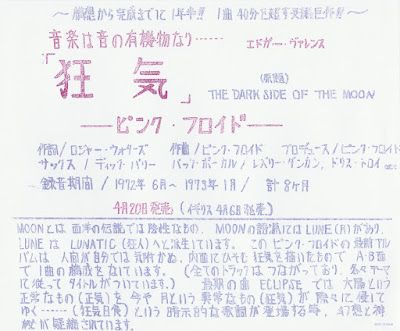 ～構想から完成までに1年半!! 1曲40分を超す長編巨作!!～
音楽は音の有機物なり…… エドガー・ヴァレンス
「狂 気」
(原題)
THE DARK SIDE OF THE MOON
――ピンク・フロイド――
作詞/ロジャー・ウォーターズ 作曲/ピンク・フロイド プロデュース/ピンク・フロイド
サックス/ディック・パリー バック・ボーカル/レズリー・ダンカン, ドリス・トロイ
録音期間/1972年6月～1973年1月/計8ケ月
4月20日発売(イギリス4月6日発売)
MOONとは西洋の伝説では陰性なもの, MOONの語源には LUNE(月)があり,
LUNEは LUNATIC(狂人)へと派生しています。このピンク・フロイドの最新アル
バムは人間が自分では気付かぬ, 内面にひそむ狂気を描いたもので A・B面
で1曲の構成をなしています。(全てのトラックはつながっており, 各々テーマ
に従ってタイトルがついています。) 最期の曲 ECLIPSE では 太陽という
正常なもの(正気)を今や月という異常なもの(狂気)が除々に侵して
ゆく……(狂気日食)という暗示的な歌詞が登場する等, 幻想と神
秘が凝縮されています。